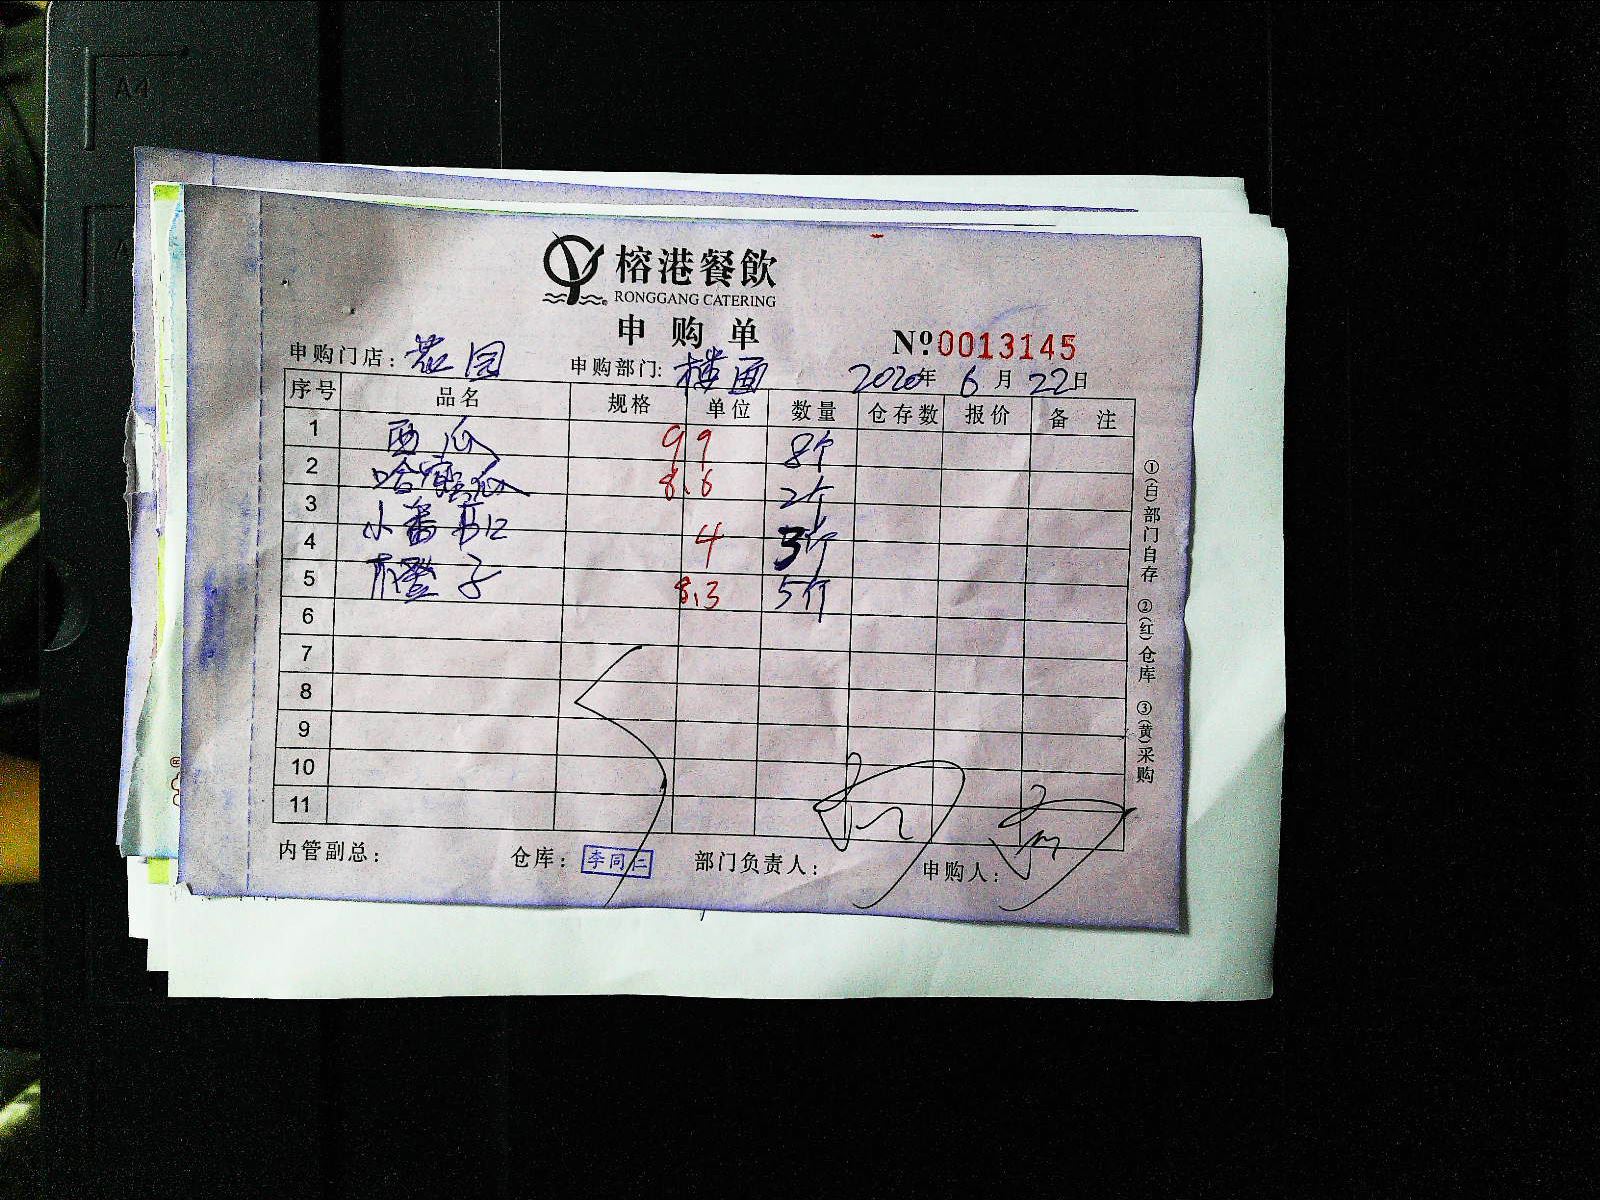 A4
榕港餐飲
RONGGANG CATERING
申购单
№ 0013145
申购门店: 农园 申购部门: 楼面 2020年 6月 22日
序号 品名 规格 单位 数量 仓存数 报价 备注
1 西瓜 99 8个
2 哈蜜瓜 8.6 2个
3 小番茄 4 3个
4 橙子 8.3 5个
5
6
7
8
9
10
11
内管副总: 仓库: 李同仁 部门负责人: 申购人:
①(白)部门自存 ②(红)仓库 ③(黄)采购